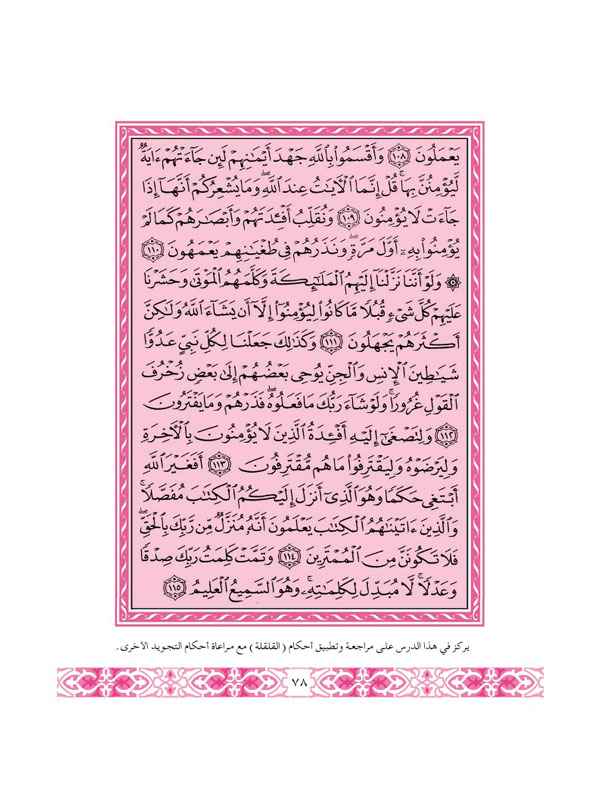 يَعۡمَلُونَ ١٠٨ وَأَقۡسَمُواْ بِٱللَّهِ جَهۡدَ أَيۡمَٰنِهِمۡ لَئِن جَآءَتۡهُمۡ ءَايَةٞ
لَّيُؤۡمِنُنَّ بِهَاۚ قُلۡ إِنَّمَا ٱلۡأٓيَٰتُ عِندَ ٱللَّهِۖ وَمَا يُشۡعِرُكُمۡ أَنَّهَآ إِذَا
جَآءَتۡ لَا يُؤۡمِنُونَ ١٠٩ وَنُقَلِّبُ أَفۡـِٔدَتَهُمۡ وَأَبۡصَٰرَهُمۡ كَمَا لَمۡ
يُؤۡمِنُواْ بِهِۦٓ أَوَّلَ مَرَّةٖۚ وَنَذَرُهُمۡ فِي طُغۡيَٰنِهِمۡ يَعۡمَهُونَ ١١٠
۞ وَلَوۡ أَنَّنَا نَزَّلۡنَآ إِلَيۡهِمُ ٱلۡمَلَٰٓئِكَةَ وَكَلَّمَهُمُ ٱلۡمَوۡتَىٰ وَحَشَرۡنَا
عَلَيۡهِمۡ كُلَّ شَيۡءٖ قُبُلٗا مَّا كَانُواْ لِيُؤۡمِنُوٓاْ إِلَّآ أَن يَشَآءَ ٱللَّهُ وَلَٰكِنَّ
أَكۡثَرَهُمۡ يَجۡهَلُونَ ١١١ وَكَذَٰلِكَ جَعَلۡنَا لِكُلِّ نَبِيٍّ عَدُوّٗا
شَيَٰطِينَ ٱلۡإِنسِ وَٱلۡجِنِّ يُوحِي بَعۡضُهُمۡ إِلَىٰ بَعۡضٖ زُخۡرُفَ
ٱلۡقَوۡلِ غُرُورٗاۚ وَلَوۡ شَآءَ رَبُّكَ مَا فَعَلُوهُۖ فَذَرۡهُمۡ وَمَا يَفۡتَرُونَ
١١٢ وَلِتَصۡغَىٰٓ إِلَيۡهِ أَفۡـِٔدَةُ ٱلَّذِينَ لَا يُؤۡمِنُونَ بِٱلۡأٓخِرَةِ
وَلِيَرۡضَوۡهُ وَلِيَقۡتَرِفُواْ مَا هُم مُّقۡتَرِفُونَ ١١٣ أَفَغَيۡرَ ٱللَّهِ
أَبۡتَغِي حَكَمٗا وَهُوَ ٱلَّذِيٓ أَنزَلَ إِلَيۡكُمُ ٱلۡكِتَٰبَ مُفَصَّلٗاۚ
وَٱلَّذِينَ ءَاتَيۡنَٰهُمُ ٱلۡكِتَٰبَ يَعۡلَمُونَ أَنَّهُۥ مُنَزَّلٞ مِّن رَّبِّكَ بِٱلۡحَقِّۖ
فَلَا تَكُونَنَّ مِنَ ٱلۡمُمۡتَرِينَ ١١٤ وَتَمَّتۡ كَلِمَتُ رَبِّكَ صِدۡقٗا
وَعَدۡلٗاۚ لَّا مُبَدِّلَ لِكَلِمَٰتِهِۦۚ وَهُوَ ٱلسَّمِيعُ ٱلۡعَلِيمُ ١١٥
يركز في هذا الدرس على مراجعة وتطبيق أحكام ( القلقلة ) مع مراعاة أحكام التجويد الأخرى .
٧٨